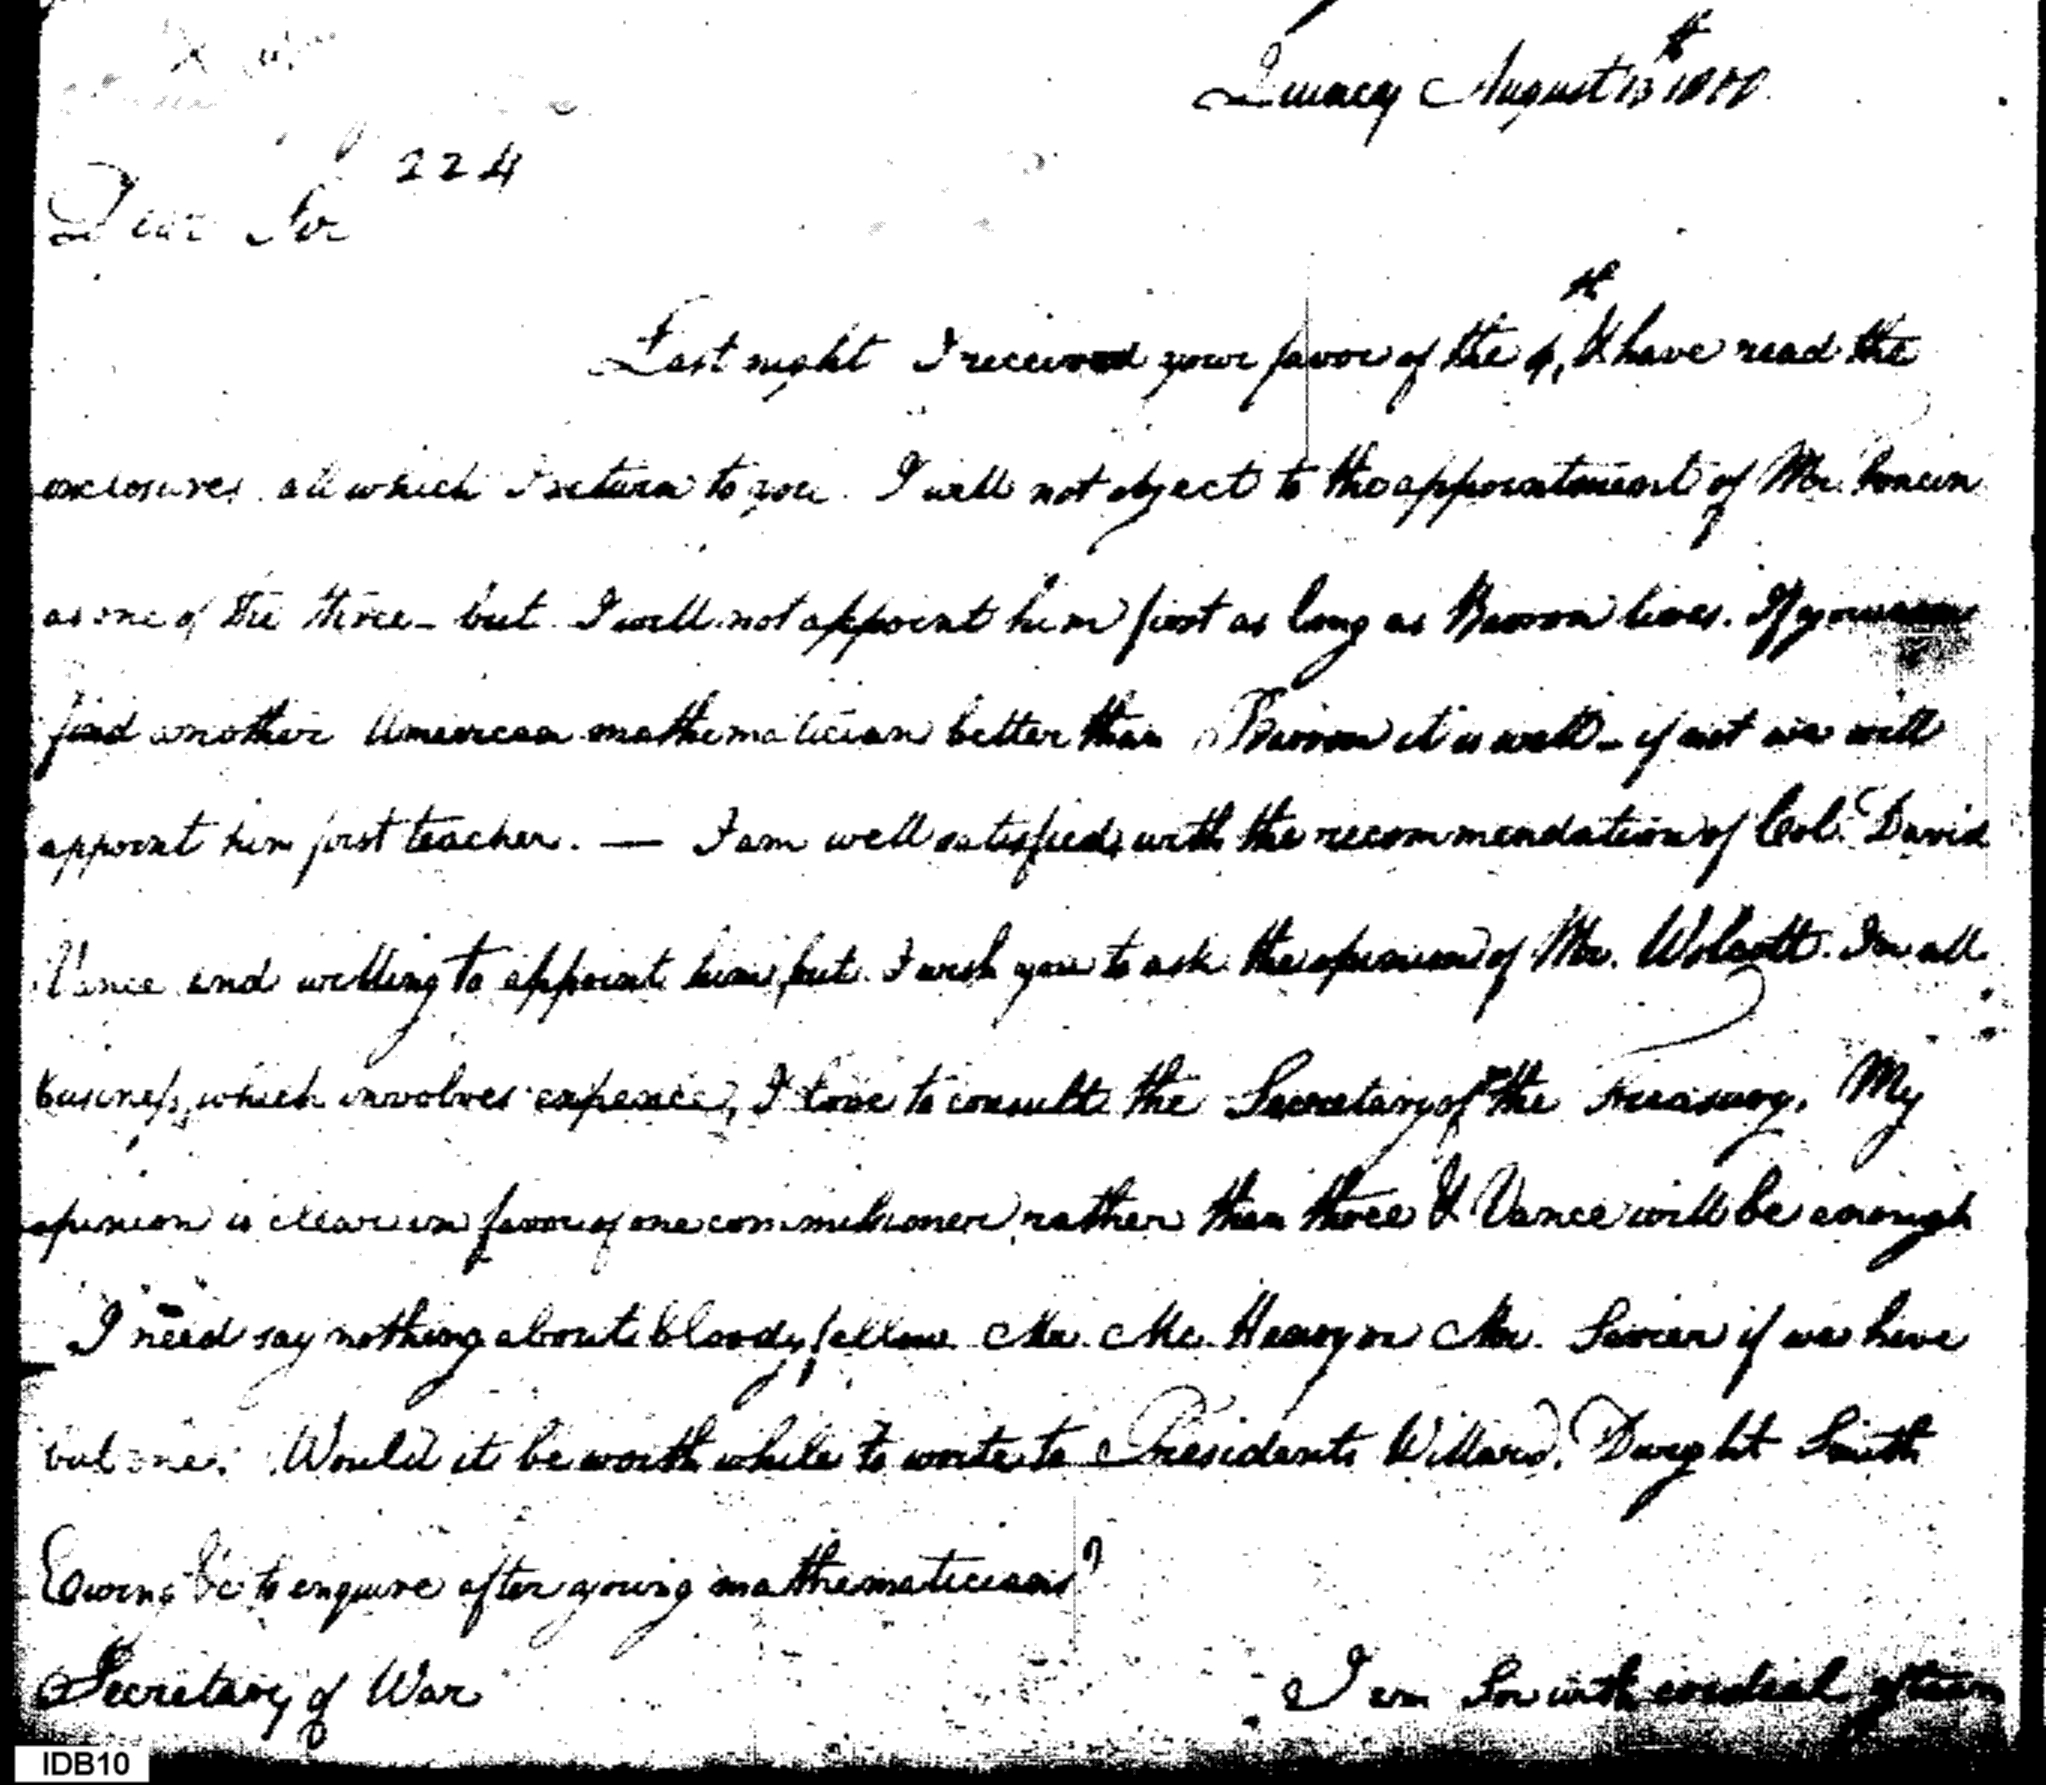 Quincy August 13th 1800
224
Dear Sir
Last night I received your favor of the 4th, & have read the
enclosures all which I return to you. I will not object to the appointment of Mr. Foncin
as one of the three - but I will not appoint him first as long as Barron lives. If you can
find another American mathematician better than Barron it is well - if not we will
appoint him first teacher. — I am well satisfied with the recommendation of Col. David
Vance and willing to appoint him, but I wish you to ask the opinion of Mr. Wolcott. In all
business, which involves expence, I love to consult the Secretary of the Treasury. My
opinion is clear in favor of one commissioner rather than three & Vance will be enough
I need say nothing about bloody fellow Mr. Mc. Henry or Mr. Sevier if we have
but one. Would it be worth while to write to Presidents Willard, Dwight Smith
Ewing &c to enquire after young mathematicians?
Secretary of War
I am Sir with cordial esteem
IDB10